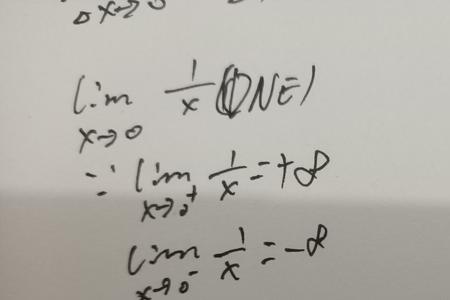 Δx→0
lim x→0 1/x (DNE)
∵ lim x→0⁺ 1/x = +∞
lim x→0⁻ 1/x = -∞